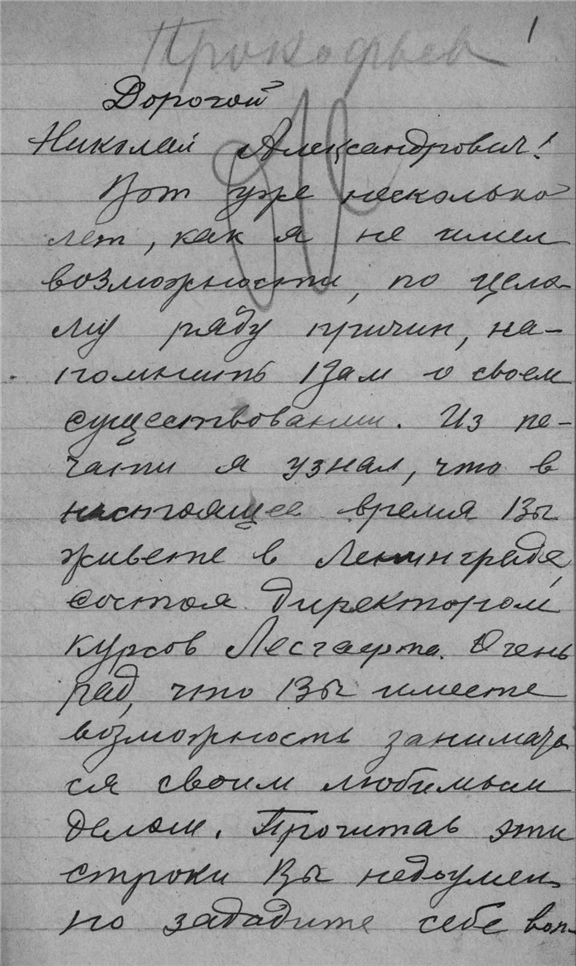 1
Прокофьев
Дорогой
Николай Александрович!
Вот уже несколько
лет, как я не имел
возможности, по цело-
му ряду причин, на-
помнить Вам о своем
существовании. Из пе-
чати я узнал, что в
настоящее время Вы
живете в Ленинграде,
состоя директором
курсов Лесгафта. Очень
рад, что Вы имеете
возможность занимать
ся своим любимым
делом. Прочитав эти
строки Вы недоумен-
но зададите себе воп-